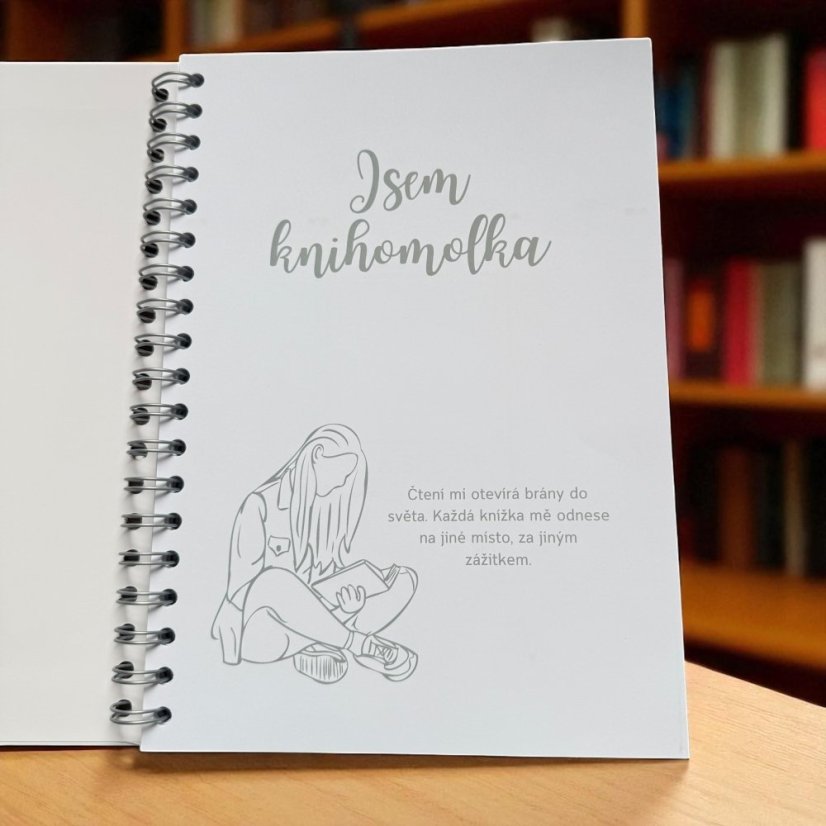 Jsem
knihomolka
Čtení mi otevírá brány do
světa. Každá knížka mě odnese
na jiné místo, za jiným
zážitkem.